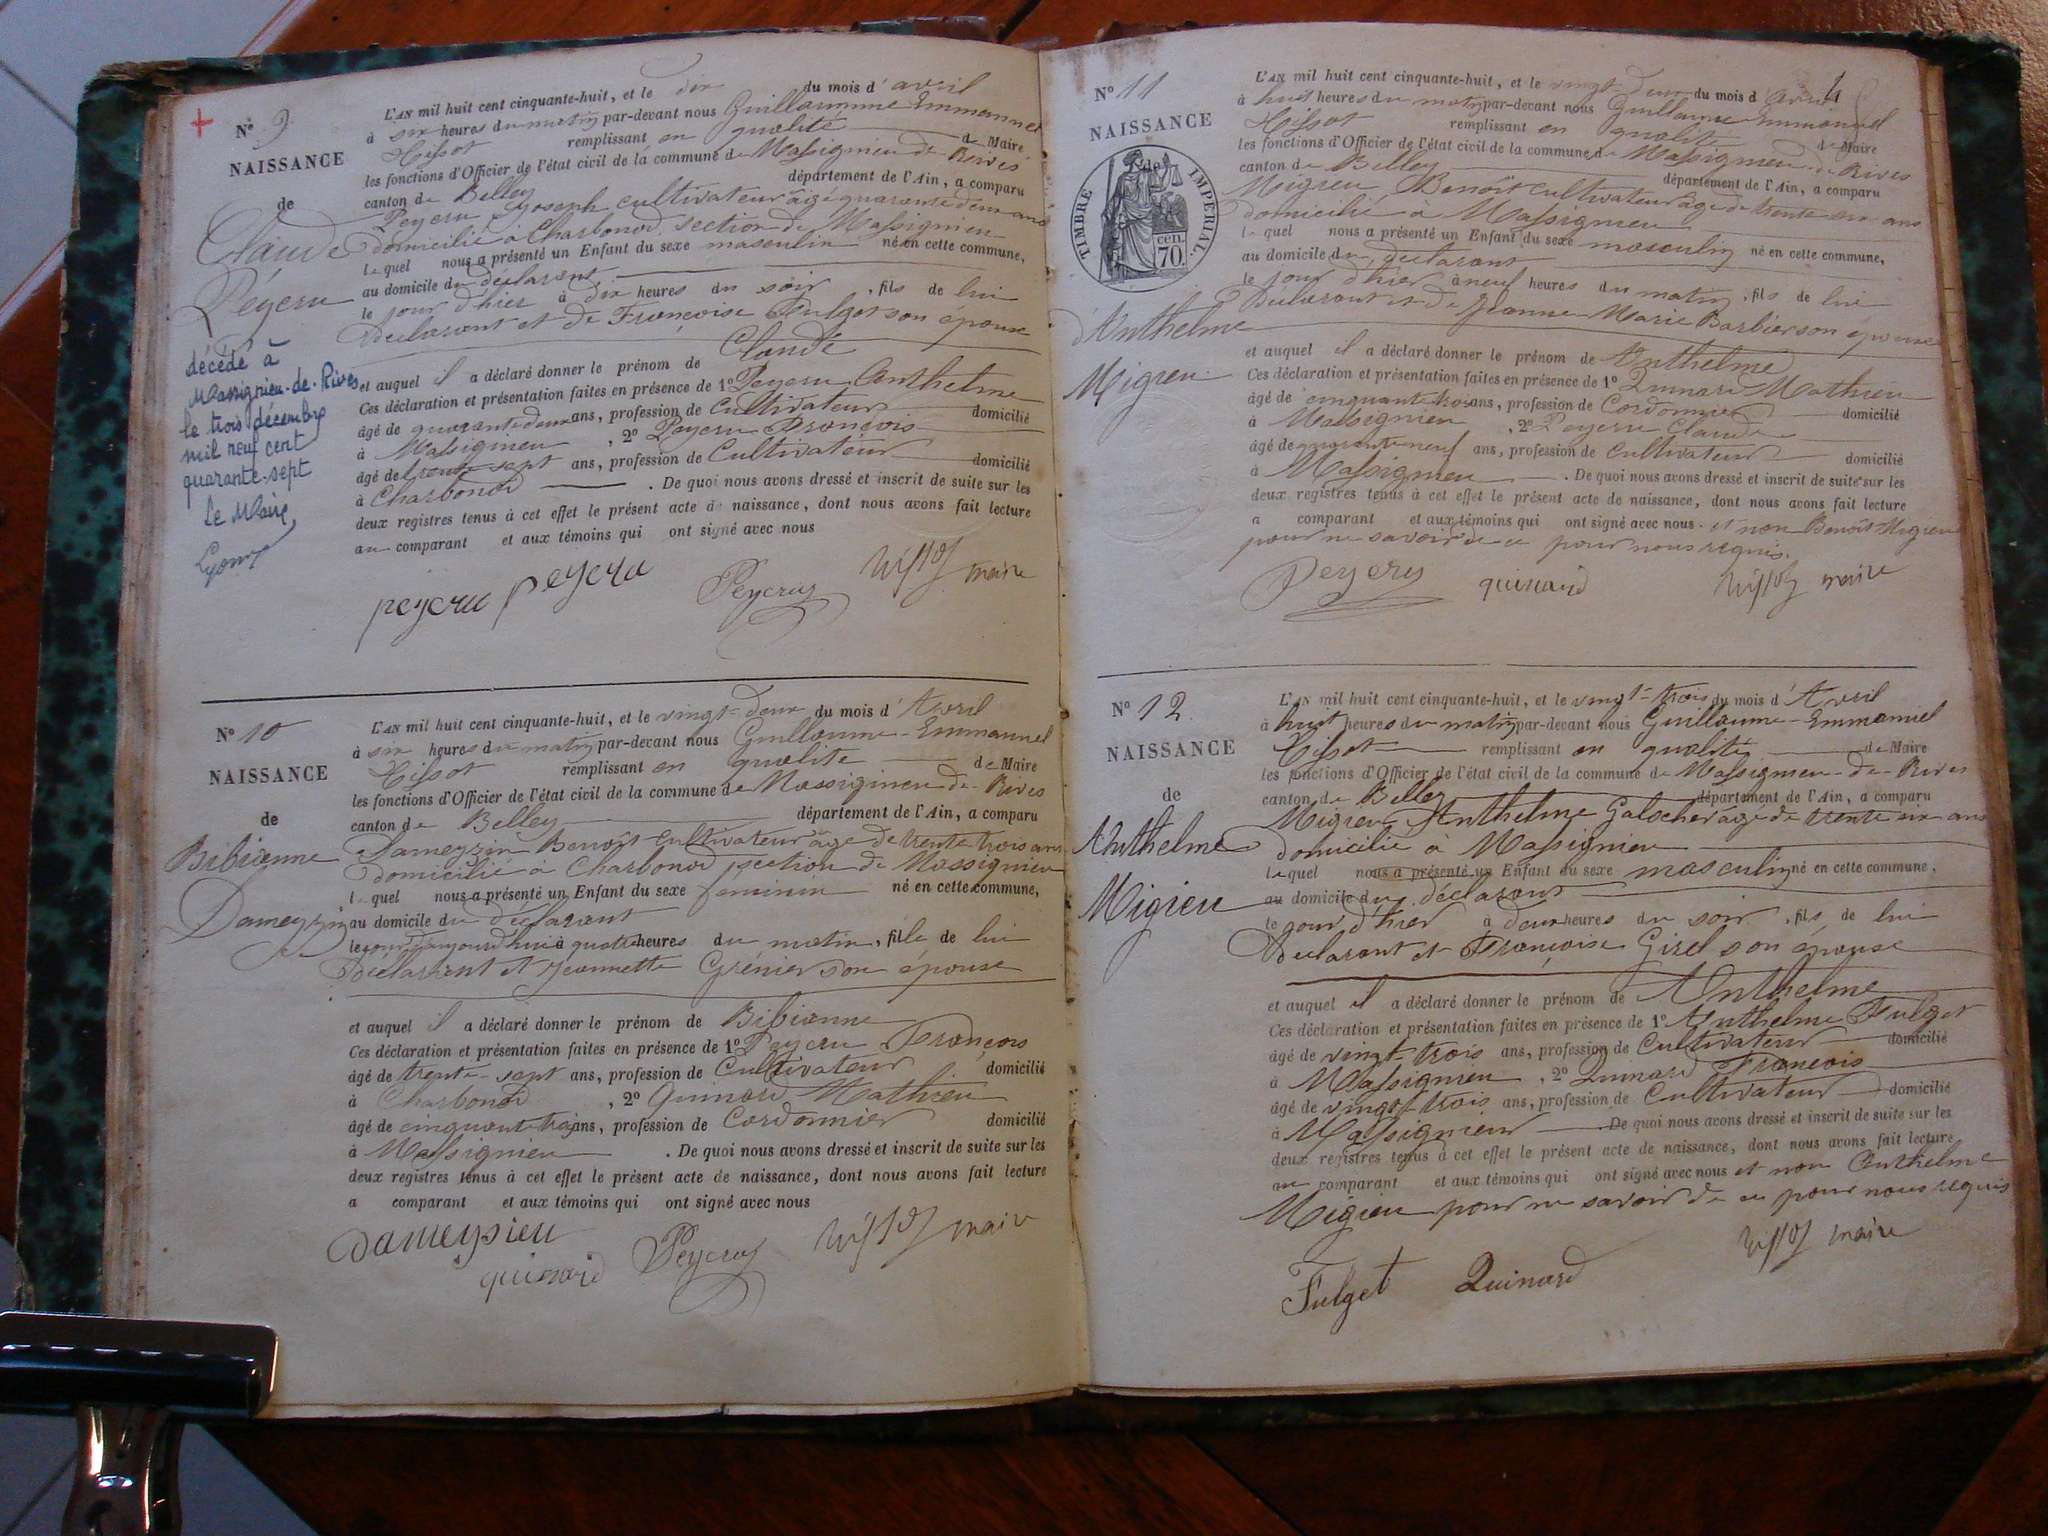 N° 9
NAISSANCE
de
Claude
Peyeru
décédé à
Massignieu-de-Rives
le trois décembre
mil neuf cent
quarante-sept
Le Maire
L'AN mil huit cent cinquante-huit, et le dix du mois d'avril
à six heures du matin par-devant nous Guillaumme Emmannel
Tissot remplissant en qualité de Maire
les fonctions d'Officier de l'état civil de la commune de Massignieu de Rives
canton de Belley département de l'Ain, a comparu
Peyeru Joseph cultivateur âgé quarante deux ans
domicilié à Charbonod section de Massignieu
lequel nous a présenté un Enfant du sexe masculin né en cette commune,
au domicile du déclarant
le jour d'hier à dix heures du soir, fils de lui
Déclarant et de Françoise Fulget son épouse
et auquel il a déclaré donner le prénom de Claude
Ces déclaration et présentation faites en présence de 1° Peyeru Anthelme
âgé de quarante deux ans, profession de Cultivateur domicilié
à Massignieu, 2° Peyeru François
âgé de trente-sept ans, profession de Cultivateur domicilié
à Charbonod. De quoi nous avons dressé et inscrit de suite sur les
deux registres tenus à cet effet le présent acte de naissance, dont nous avons fait lecture
au comparant et aux témoins qui ont signé avec nous
peyeru peyeru Peyeru Tissot maire
N° 10
NAISSANCE
de
Bibianne
Dameyzin
L'AN mil huit cent cinquante-huit, et le vingt-deux du mois d'Avril
à six heures du matin par-devant nous Guillaume-Emmannel
Tissot remplissant en qualité de Maire
les fonctions d'Officier de l'état civil de la commune de Massignieu de-Rives
canton de Belley département de l'Ain, a comparu
Dameyzin Benoît Cultivateur âgé de trente trois ans
domicilié à Charbonod section de Massignieu
lequel nous a présenté un Enfant du sexe féminin né en cette commune,
au domicile du déclarant
le jour d'aujourd'hui à quatre heures du matin, fille de lui
Déclarant et Jeannette Grénier son épouse
et auquel il a déclaré donner le prénom de Bibianne
Ces déclaration et présentation faites en présence de 1° Peyeru François
âgé de trente-sept ans, profession de Cultivateur domicilié
à Charbonod, 2° Quinard Mathieu
âgé de cinquante trois ans, profession de Cordonnier domicilié
à Massignieu. De quoi nous avons dressé et inscrit de suite sur les
deux registres tenus à cet effet le présent acte de naissance, dont nous avons fait lecture
a comparant et aux témoins qui ont signé avec nous
dameysieu quinard Peyeru Tissot maire
N° 11
NAISSANCE
de
TIMBRE IMPERIAL.
70 cen.
d'Anthelme
Migieu
4
L'AN mil huit cent cinquante-huit, et le vingt-deux du mois d'avril
à huit heures du matin par-devant nous Guillaume-Emmanuel
Tissot remplissant en qualité de Maire
les fonctions d'Officier de l'état civil de la commune de Massignieu de Rives
canton de Belley département de l'Ain, a comparu
Migieu Benoît Cultivateur âgé de trente six ans
domicilié à Massignieu
lequel nous a présenté un Enfant du sexe masculin né en cette commune,
au domicile du déclarant
le jour d'hier à neuf heures du matin, fils de lui
Déclarant et de Jeanne Marie Barbier son épouse
et auquel il a déclaré donner le prénom de Anthelme
Ces déclaration et présentation faites en présence de 1° Quinard Mathieu
âgé de cinquante trois ans, profession de Cordonnier domicilié
à Massignieu, 2° Peyeru Claude
âgé de quarante neuf ans, profession de Cultivateur domicilié
à Massignieu. De quoi nous avons dressé et inscrit de suite sur les
deux registres tenus à cet effet le présent acte de naissance, dont nous avons fait lecture
a comparant et aux témoins qui ont signé avec nous. et non Benoit Migieu
pour ne savoir de ce pour nous requis.
Peyeru quinard Tissot maire
N° 12
NAISSANCE
de
Anthelme
Migieu
L'AN mil huit cent cinquante-huit, et le vingt-trois du mois d'Avril
à huit heures du matin par-devant nous Guillaume-Emmanuel
Tissot remplissant en qualité de Maire
les fonctions d'Officier de l'état civil de la commune de Massignieu-de-Rives
canton de Belley département de l'Ain, a comparu
Migieu Anthelme Galocher âgé de trente six ans
domicilié à Massignieu
lequel nous a présenté un Enfant du sexe masculin né en cette commune,
au domicile du déclarant
le jour d'hier à deux heures du soir, fils de lui
Déclarant et Françoise Girel son épouse
et auquel il a déclaré donner le prénom de Anthelme
Ces déclaration et présentation faites en présence de 1° Anthelme Fulget
âgé de vingt-trois ans, profession de Cultivateur domicilié
à Massignieu, 2° Quinard François
âgé de vingt-trois ans, profession de Cultivateur domicilié
à Massignieu De quoi nous avons dressé et inscrit de suite sur les
deux registres tenus à cet effet le présent acte de naissance, dont nous avons fait lecture
au comparant et aux témoins qui ont signé avec nous et non Anthelme
Migieu pour ne savoir de ce pour nous requis
Fulget Quinard Tissot maire